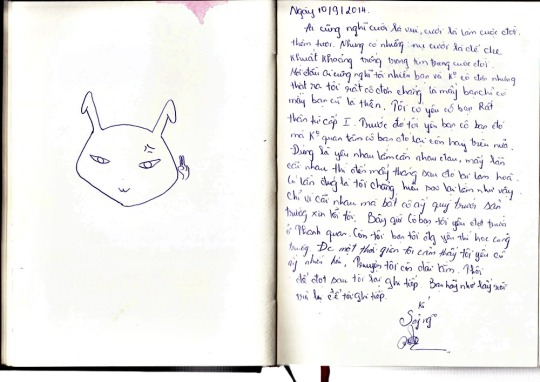 Ngày 10/9/2014.
Ai cũng nghĩ cười là vui, cười là làm cuộc đời
thêm tươi. Nhưng có những nụ cười là để che
khuất khoảng trống trong tim trong cuộc đời.
Nơi đâu ai cũng nghĩ tôi nhiều bạn và ko cô đơn nhưng
thật ra tôi rất cô đơn chẳng là mấy bạn chỉ có
mấy bạn cũ là thân. Tôi có yêu cô bạn Rất
thân từ cấp I. Trước đó tôi yêu bạn cô bạn đó
mà ko quan tâm cô bạn đó lại còn hay trêu nữa.
Đúng là yêu nhau lắm cắn nhau đau, mấy lần
cãi nhau thì đến mấy tháng sau đó lại làm hoà.
Có lần đúng là tôi chẳng hiểu sao lại làm như vậy
chỉ vì cãi nhau mà bắt cô ấy quỳ trước sân
trường xin lỗi tôi. Bây giờ cô bạn tôi yêu đợt trước
ở Thanh quan. Còn tôi bạn tôi đg yêu thì học cùng
trường. Đc một thời gian tôi cảm thấy tôi yêu cô
ấy nhiều hơn, Truyện tôi còn dài lắm. Thôi
để đợt sau tôi lại ghi tiếp. Bạn hãy như lấy
để tôi ghi tiếp.
Kí